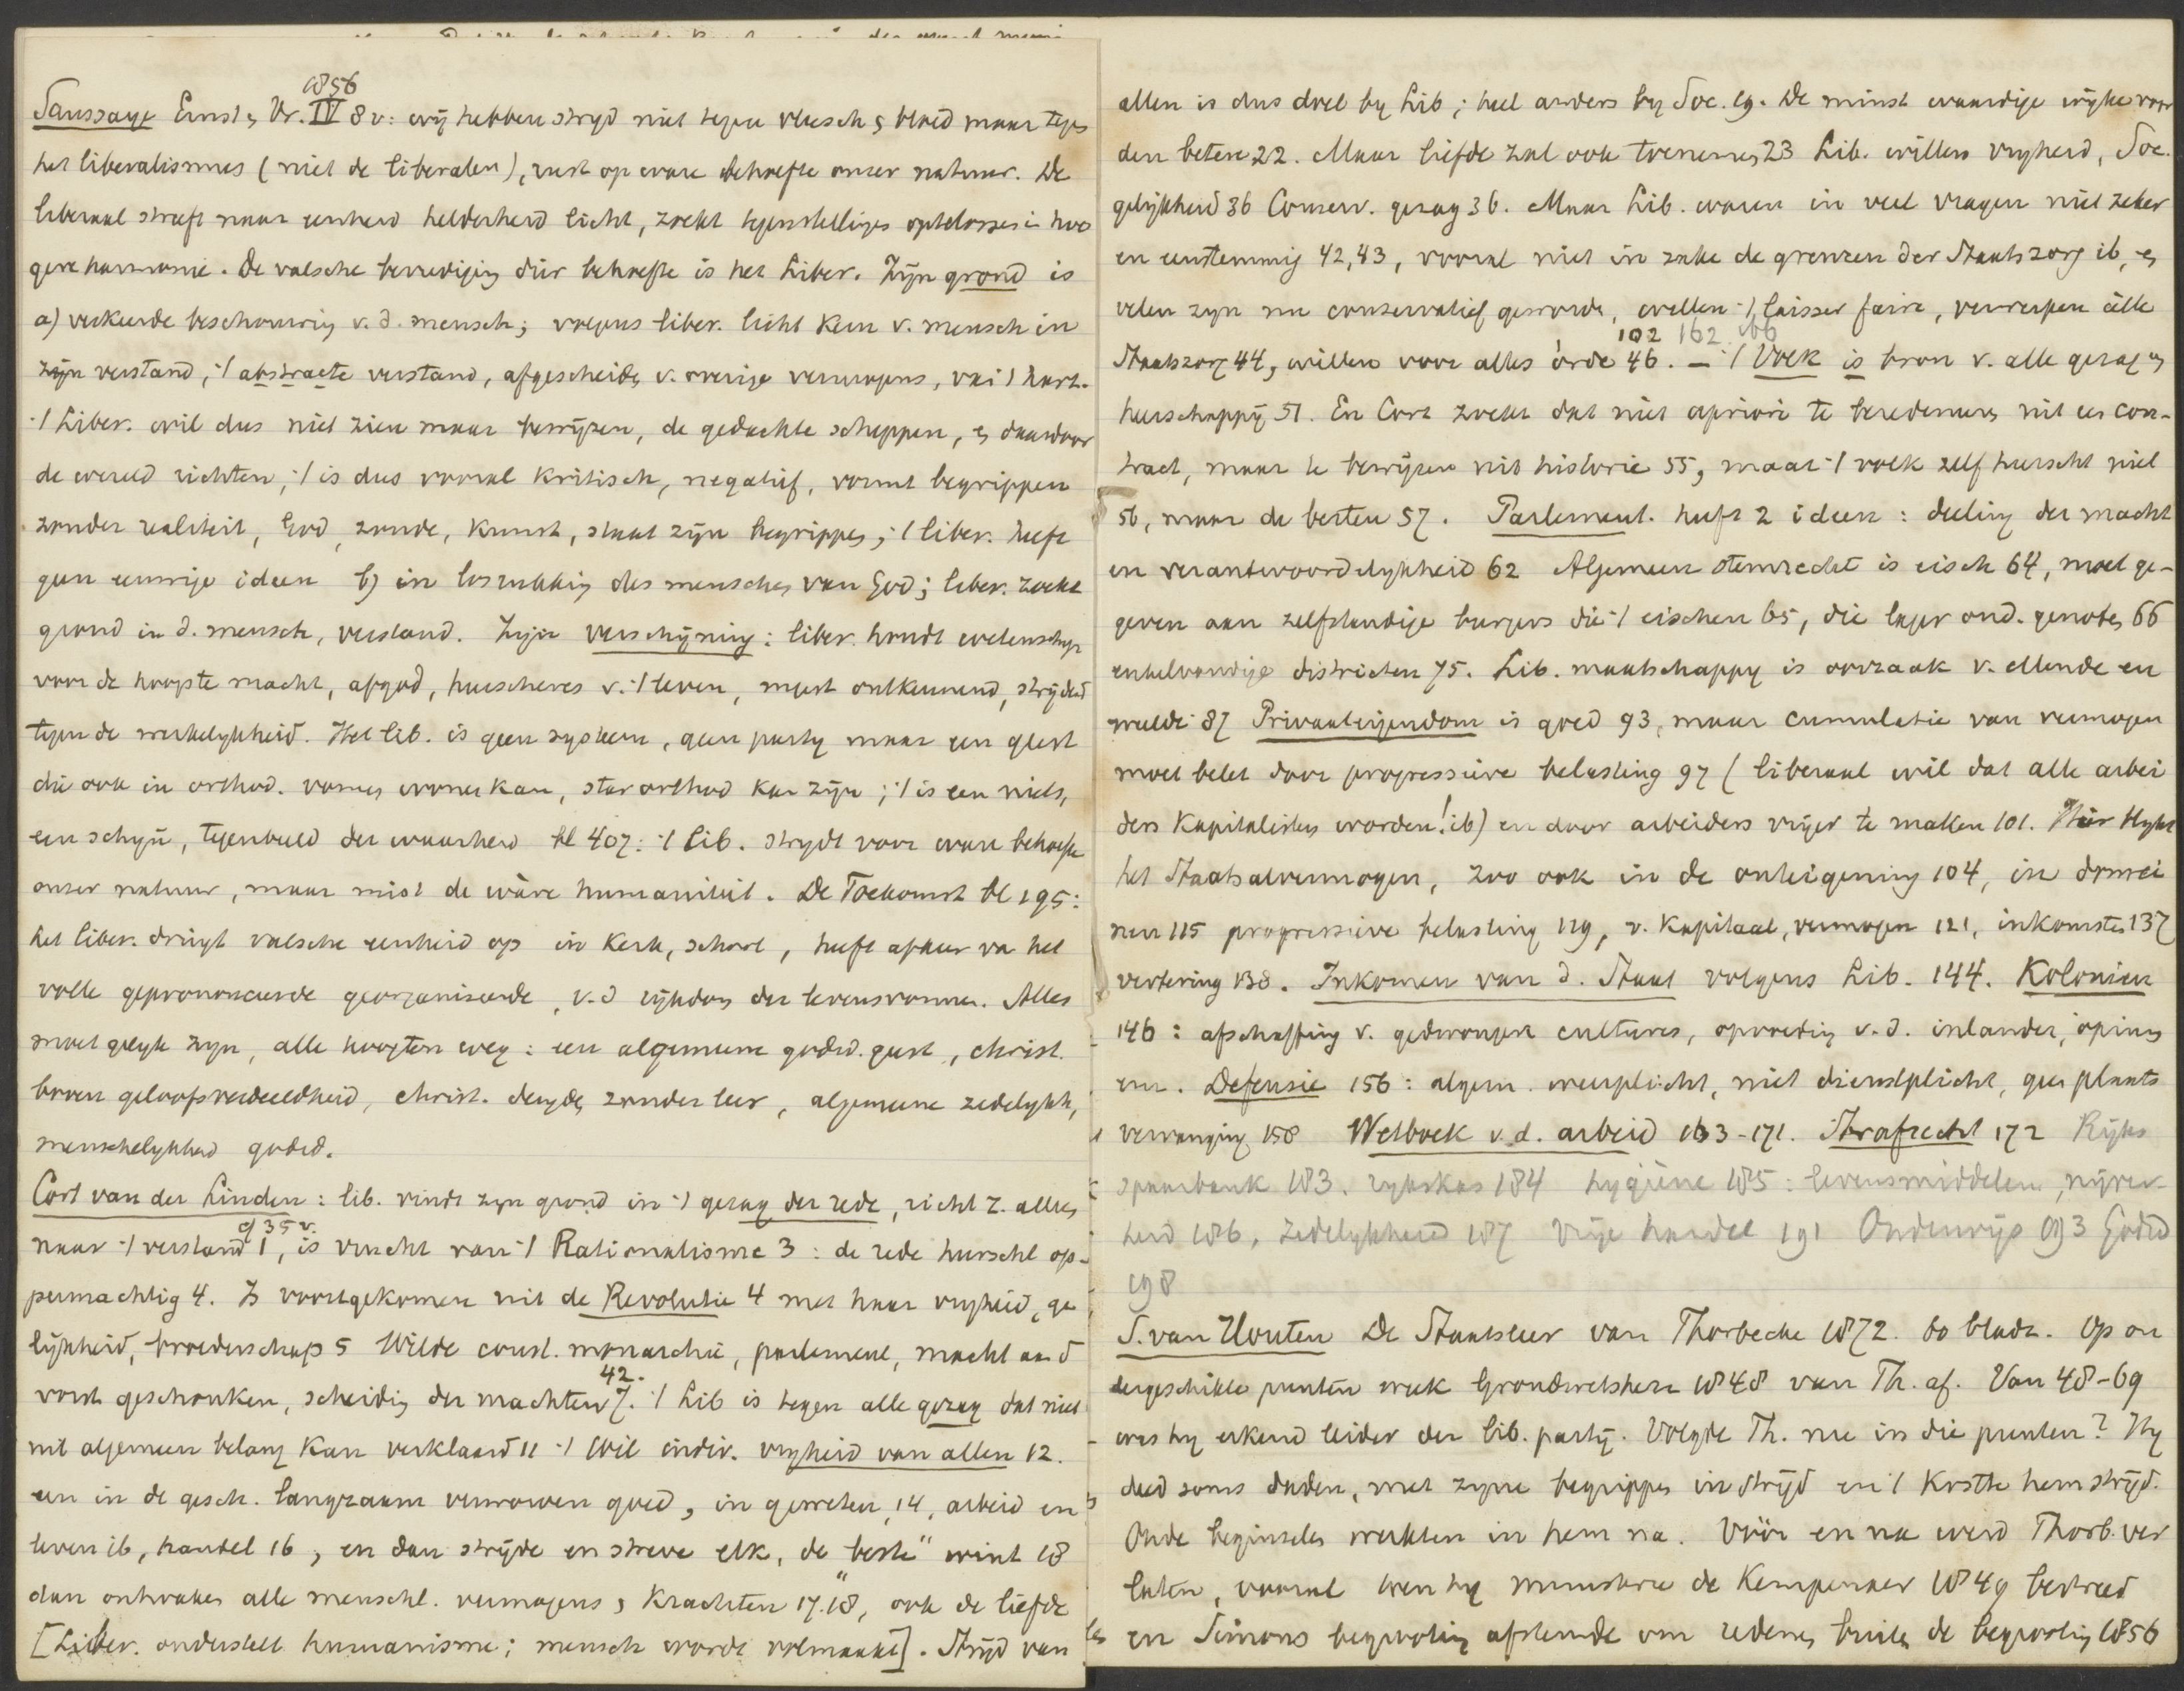 1856
Saussaye Ernst en Vr. IV 8 v: wij hebben strijd niet tegen vleesch en bloed maar tegen
het liberalismus (niet de liberalen), rust op ware behoefte onzer natuur. De
liberaal streeft naar eenheid helderheid licht, zoekt tegenstellingen optelossen in hoo
gere harmonie. De valsche bevrediging dier behoefte is het Liber. Zijn grond is
a) verkeerde beschouwing v. d. mensch; volgens liber. licht kern v. mensch in
zijn verstand, 't abstracte verstand, afgescheiden v. overige vermogens, van 't hart.
't Liber. wil dus niet zien maar bewijzen, de gedachte scheppen, en daardoor
de wereld richten, 't is dus vooral kritisch, negatief, vormt begrippen
zonder realiteit, God, zonde, kunst, staat zijn begrippen; 't liber. heeft
geen eeuwige ideen b) in losrukking des menschen van God; liber. zoekt
grond in d. mensch, verstand. Zijn verschijning: liber. houdt wetenschap
voor de hoogste macht, afgod, heerscheres v. 't leven, meest ontkennend, strijdend
tegen de werkelykheid. Het lib. is geen systeem, geen party maar een geest
die ook in orthod. vormen wonen kan, star orthod kan zijn; 't is een niets,
een schijn, tegenbeeld der waarheid bl 407: 't Lib. strydt voor ware behoefte
onzer natuur, maar mist de wàre humaniteit. De Toekomst bl 195:
het liber. dringt valsche eenheid op in kerk, school, heeft afkeer van het
volle geprononceerde georganiseerde, v. d rijkdom der levensvormen. Alles
moet gelyk zyn, alle hoogten weg: een algemeene godsd. geest, christ.
boven geloofsverdeeldheid, christ. deugden zonder leer, algemeene zedelykh,
menschelykheid godsd.
Cort van der Linden: lib. vindt zyn grond in 't gezag der rede, richt z. alles
cf 35 v.
naar 't verstand 1, is vrucht van 't Rationalisme 3: de rede heerscht op-
permachtig 4. Is voortgekomen uit de Revolutie 4 met haar vryheid, ge
lijkheid, broederschap 5 Wilde const. monarchie, parlement, macht aan d
42.
vorst geschonken, scheiding der machten 7. 't Lib is tegen alle gezag dat niet
uit algemeen belang kan verklaard 11 't Wil indiv. vryheid van allen 12.
een in de gesch. langzaam verworven goed, in geweten 14, arbeid en
leven ib, handel 16, en dan strijde en streve elk, de "beste" wint 18
dan ontwaken alle menschl. vermogens en krachten 17.18, ook de liefde
[Liber. onderstelt humanisme; mensch wordt volmaakt]. Strijd van
allen is dus doel by Lib; heel anders by Soc. 19. De minst waardige wijke voor
den betere 22. Maar liefde zal ook toenemen 23 Lib. willen vryheid, Soc.
gelijkheid 36 Conserv. gezag 36. Maar Lib. waren in veel vragen niet zeker
en eenstemmig 42, 43, vooral niet in zake de grenzen der Staatszorg ib, en
velen zyn nu conservatief geworden, willen 't laisser faire, verwerpen alle
102 162. 166
Staatszorg 44, willen voor alles orde 46. — 't Volk is bron v. alle gezag en
heerschappij 51. En Cort zoekt dat niet apriori te beredeneeren uit een con-
tract, maar te bewijzen uit historie 55, maar 't volk zelf heerscht niet
56, maar de besten 57. Parlement. heeft 2 ideen: deeling der macht
en verantwoordelykheid 62 Algemeen stemrecht is eisch 64, moet ge-
geven aan zelfstandige burgers die 't eischen 65, die lager ond. genoten 66
enkelvoudige districten 75. Lib. maatschappy is oorzaak v. ellende en
weelde 87 Privaateigendom is goed 93, maar cumulatie van vermogen
moet belet door progressieve belasting 97 (liberaal wil dat alle arbei
ders kapitalisten worden! ib) en door arbeiders vrijer te maken 101. Hier blykt
het Staatsalvermogen, zoo ook in de onteigening 104, in domei
nen 115 progressieve belasting 119, v. kapitaal, vermogen 121, inkomsten 137
vertering 138. Inkomen van d. Staat volgens Lib. 144. Kolonien
146: afschaffing v. gedwongen cultures, opvoeding v. d. inlander, opium
enz. Defensie 156: algem. weerplicht, niet dienstplicht, geen plaats
vervanging 158 Wetboek v. d. arbeid 163-171. Strafrecht 172 Rijks
spaarbank 183. rykskas 184 hygiëne 185: levensmiddelen, nijver-
heid 186, zedelykheid 187 Vrije handel 191 Onderwijs 193 Godsd
198
S. van Houten De Staatsleer van Thorbecke 1872. 60 bladz. Op on
dergeschikte punten week Grondwetsherz 1848 van Th. af. Van 48-69
was hy erkend leider der lib. partij. Volgde Th. nu in die punten? Hy
deed soms daden, met zyne begrippen in strijd en 't kostte hem strijd.
Oude beginselen werkten in hem na. Vóór en na werd Thorb. ver
laten, vooral toen hy ministerie de Kempenaer 1849 bestreed
en Simons begrooting afstemde om redenen buiten de begrooting 1856